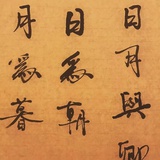 日月與卿
日爲朝
月爲暮